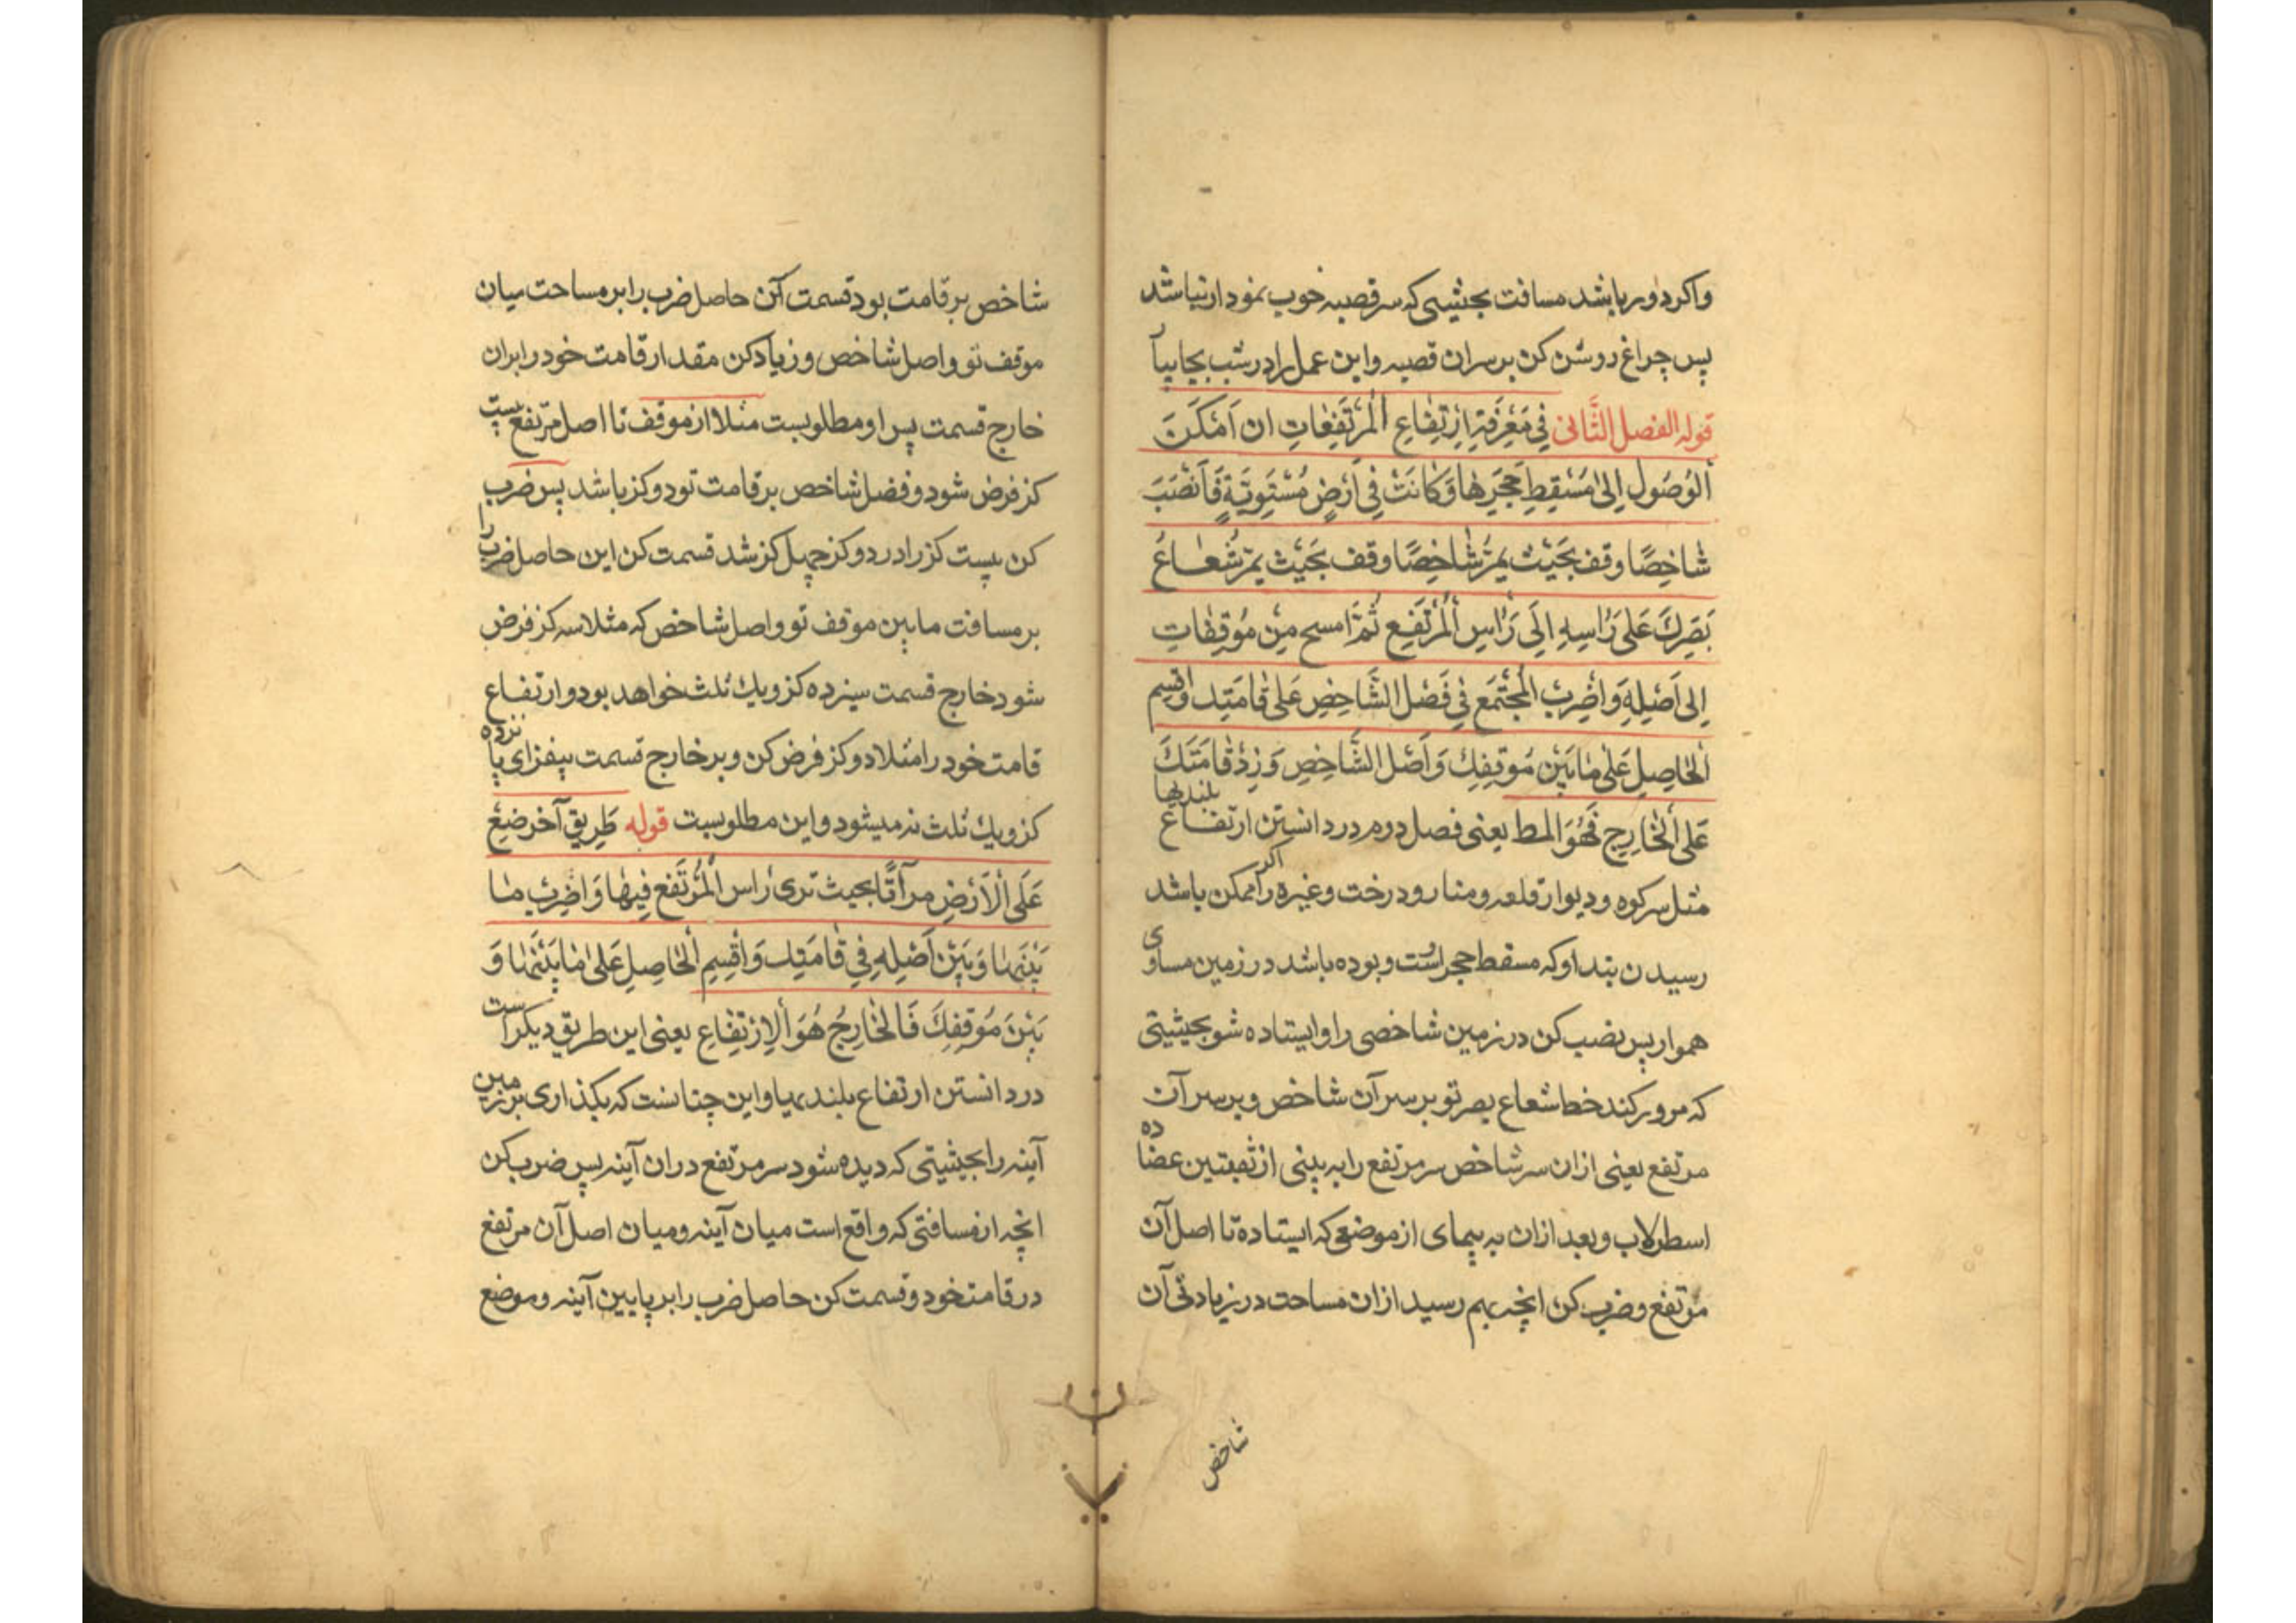 واکر دور باشد مسافت بحیثیی که سر قصبه خوب نمودار نباشد
پس چراغ روشن کن بر سران قصبه واین عمل را در شب بجا بیا
قوله الفصل الثَّانی فِی مَعْرِفَةِ اِرْتِفَاعِ الْمُرْتَفِعَاتِ ان اَمْکَنَ
الْوُصُول اِلیٰ مَسْقِطِ حَجَرِهَا وَکَانَتْ فِی اَرْضٍ مُسْتَوِیَةٍ فَانْصَبَ
شَاخِصًا وقف بَحَیْث یَمُرُّ شَاخِصًا وقف بَحَیْث یمرّ شُعَاعُ
بَصَرِکَ عَلیٰ رَاسِهِ اِلَی رَاسِ الْمُرْتَفِعِ ثُمَّ امسح مِنْ مُوْقِفَاتِ
اِلی اَصْلِهِ وَاضْرِبْ الْمُجْتَمَع فِی فَضْل الشَّاخِصِ عَلیٰ قَامَتِک واقسم
الْحَاصِلِ عَلیٰ مَا بَیْن مُوْقِفِكَ وَاَصْل الشَّاخِصِ وَزِدْ قَامَتَكَ
عَلی الْخَارِجِ فَهُوَ المط یعنی فصل دوم در دانستن ارتفاع بلندیها
مثل سر کوه و دیوار قلعه و منار و درخت وغیره را اکر ممکن باشد
رسیدن بتداو که مسقط حجر است و بوده باشد در زمین مساوی
هموار پس نصب کن در زمین شاخصی را وایستاده شو بحیثیتی
که مرور کند خط شعاع بصر تو بر سر آن شاخص و بر سر آن
مرتفع یعنی ازان سر شاخص سر مرتفع را به بینی از ثقبتین عضاده
اسطرلاب و بعد ازان به پیمای از موضعی که ایستاده تا اصل آن
مرتفع و ضرب کن انچه بهم رسید ازان مساحت در زیادتی آن
شاخص
شاخص بر قامت بود قسمت آکن حاصل ضرب را بر مساحت میان
موقف تو و اصل شاخص و زیاد کن مقدار قامت خود را بران
خارج قسمت پس او مطلوبست مثلا از موقف تا اصل مرتفع بیست
کز فرض شود و فضل شاخص بر قامت تو دو کز باشد پس ضرب
کن بیست کز را در دو کز چهل کز شد قسمت کن این حاصل ضرب را
بر مسافت مابین موقف تو و اصل شاخص که مثلا سه کز فرض
شود خارج قسمت سیزده کز و یك ثلث خواهد بود و ارتفاع
قامت خود را مثلا دو کز فرض کن و بر خارج قسمت بیفزای پانزده
کز و یك ثلث نه میشود و این مطلوبست قوله طَرِیق آخر ضَعْ
عَلَی الْاَرْضِ مرآتًا بحیث تری رَاس الْمُرْتَفع فِیهَا وَاضْرِبْ مَا
بَیْنَهَا وَبَیْن اَصْلِهِ فِی قَامَتِك وَاَقْسِمِ الْحَاصِلِ عَلیٰ مَا بَیْنَهَا وَ
بَیْنَ مُوْقِفِكَ فَالْخَارِجُ هُوَ الْاِرْتِفَاعِ یعنی این طریق دیکر است
در دانستن ارتفاع بلندیها و این چنانست که بکذاری بر زمین
آینه را بحیثیتی که دیده شود سر مرتفع دران آینه پس ضرب کن
انچه از مسافتی که واقع است میان آینه و میان اصل آن مرتفع
در قامت خود و قسمت کن حاصل ضرب را بر پایین آینه و موضع